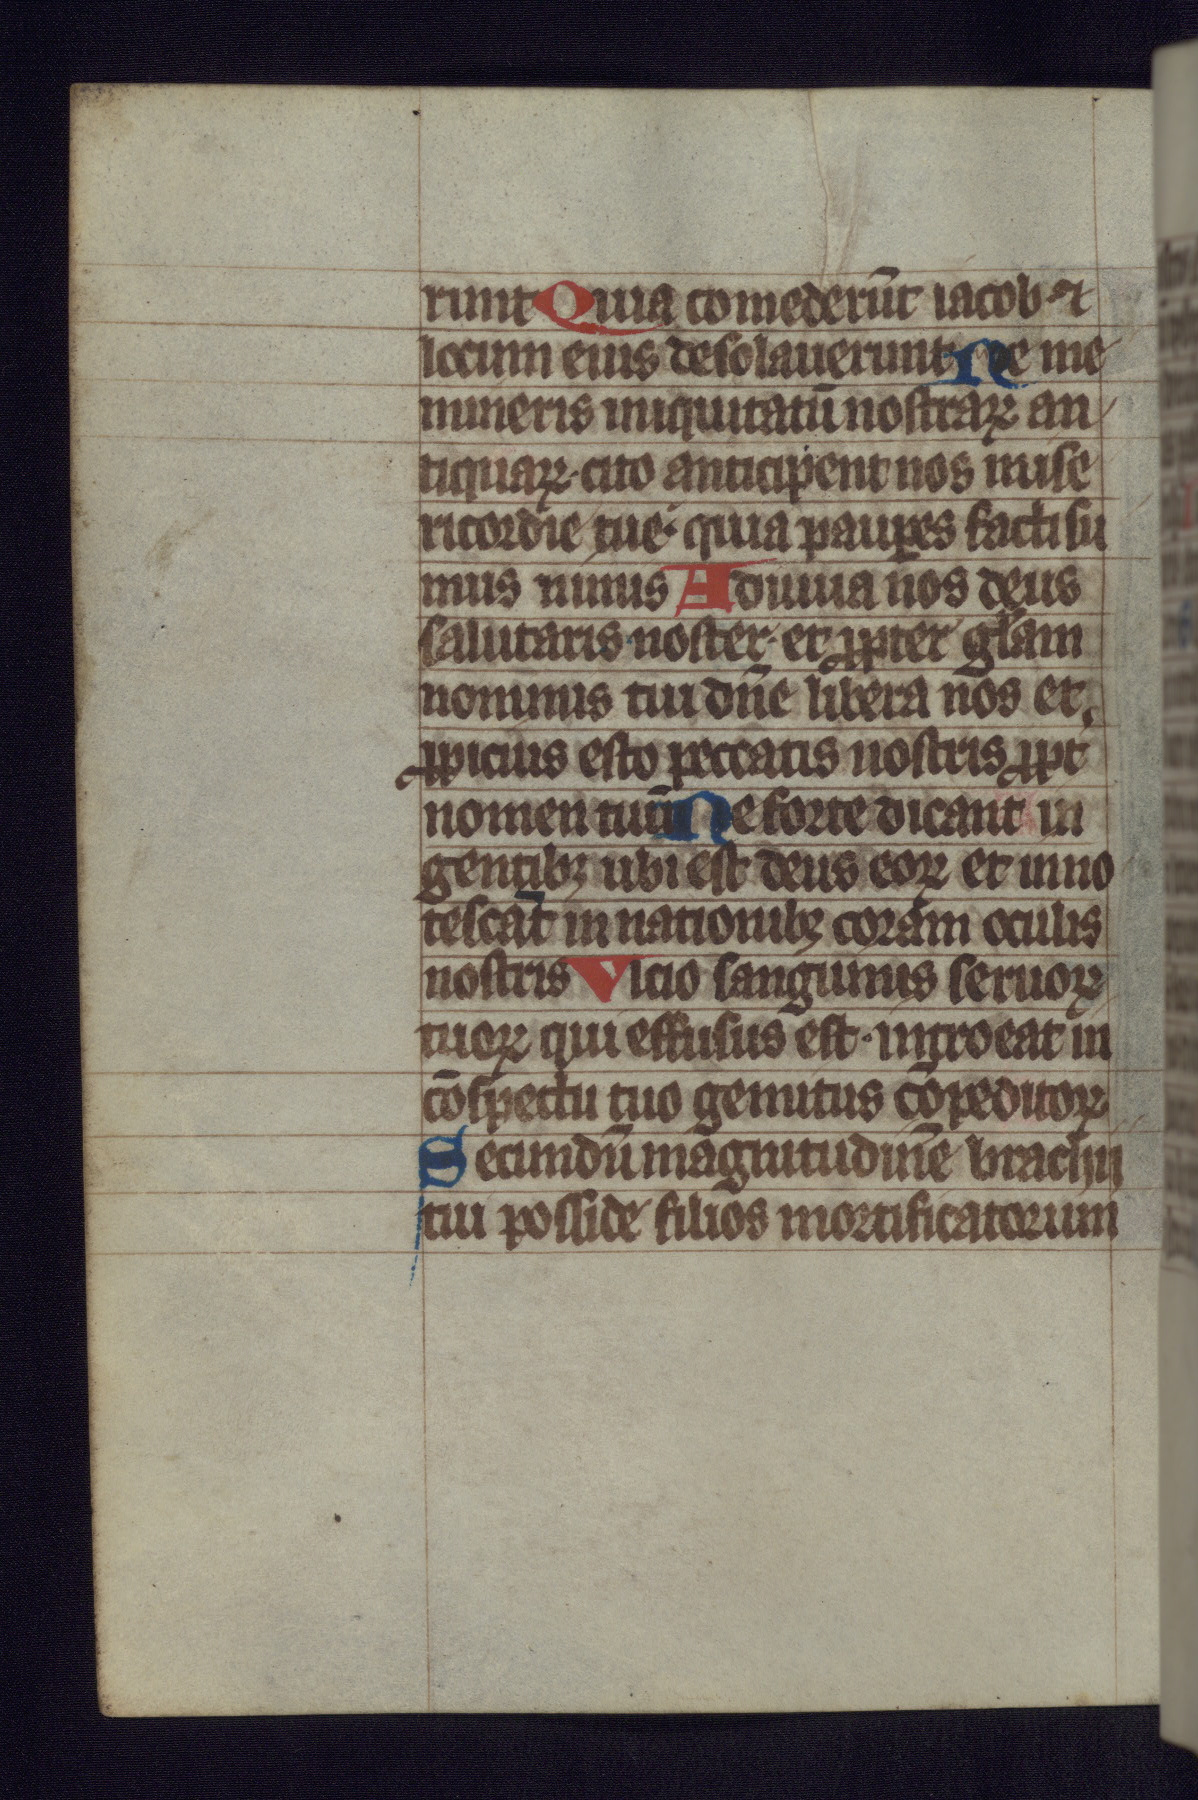 runt Quia comederūt iacob ⁊
locum eius desolauerunt Ne me
mineris iniquitatū nostraꝝ an
tiquaꝝ · cito anticipent nos mise
ricordie tue · quia pauꝑes facti su
mus nimis Adiuua nos deus
salutaris noster · et ꝓpter gl̄am
nominis tui dn̄e libera nos et
ꝓpicius esto peccatis nostris ꝓpt̄
nomen tuū Ne forte dicant in
gentibꝫ ubi est deus eoꝝ et inno
tescat in nationibꝫ coram oculis
nostris Vlcio sanguinis seruoꝝ
tuoꝝ qui effusus est · introeat in
cōspectu tuo gemitus cōpeditoꝝ
Secundū magnitudinē brachii
tui posside filios mortificatorum